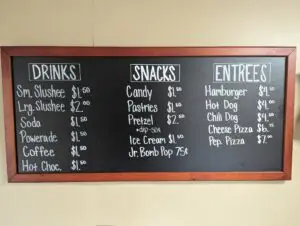 DRINKS
Sm. Slushee $1.50
Lrg. Slushee $2.00
Soda $1.50
Powerade $1.50
Coffee $1.50
Hot Choc. $1.50
SNACKS
Candy $1.50
Pastries $1.50
Pretzel $2.50
*dip-50¢
Ice Cream $1.50
Jr. Bomb Pop 75¢
ENTREES
Hamburger $4.50
Hot Dog $4.00
Chili Dog $4.50
Cheese Pizza
Pep. Pizza $7.00